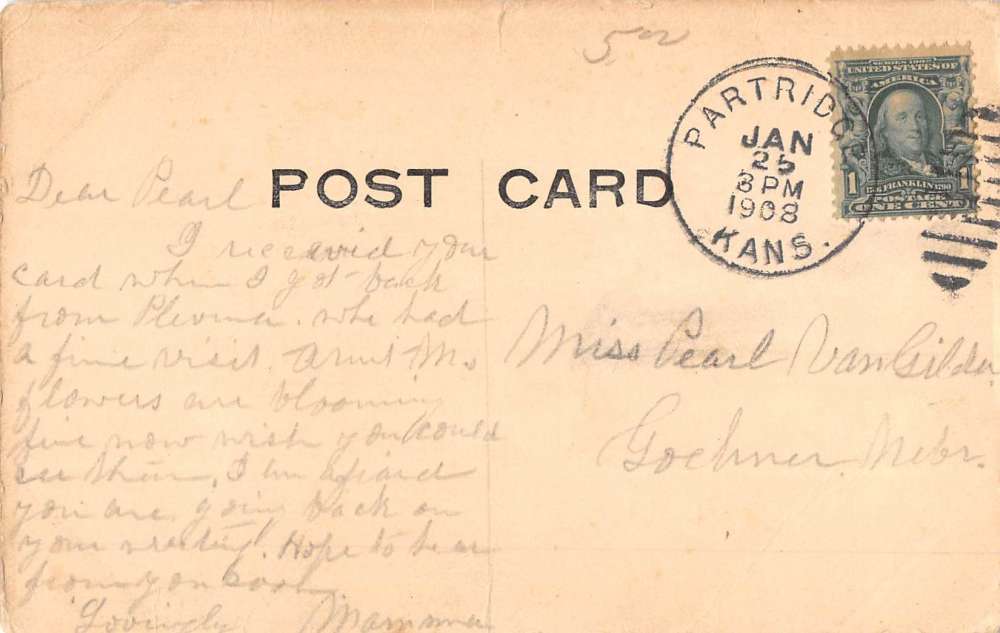 5 00
POST CARD
PARTRIDGE
JAN
25
3 PM
1908
KANS.
SERIES 1902
UNITED STATES OF
AMERICA
1 FRANKLIN 1790 1
POSTAGE
ONE CENT
Dear Pearl
I receevid your
card when I got back
from Plevna. who had
a fine visit. Aunt Ms
flowers are blooming
fine now wish you could
see them, I am afiard
you are going back on
your writing! Hope to hear
from you soon
Lovingly Mamma
Miss Pearl VanGilder
Goehner. Nebr.